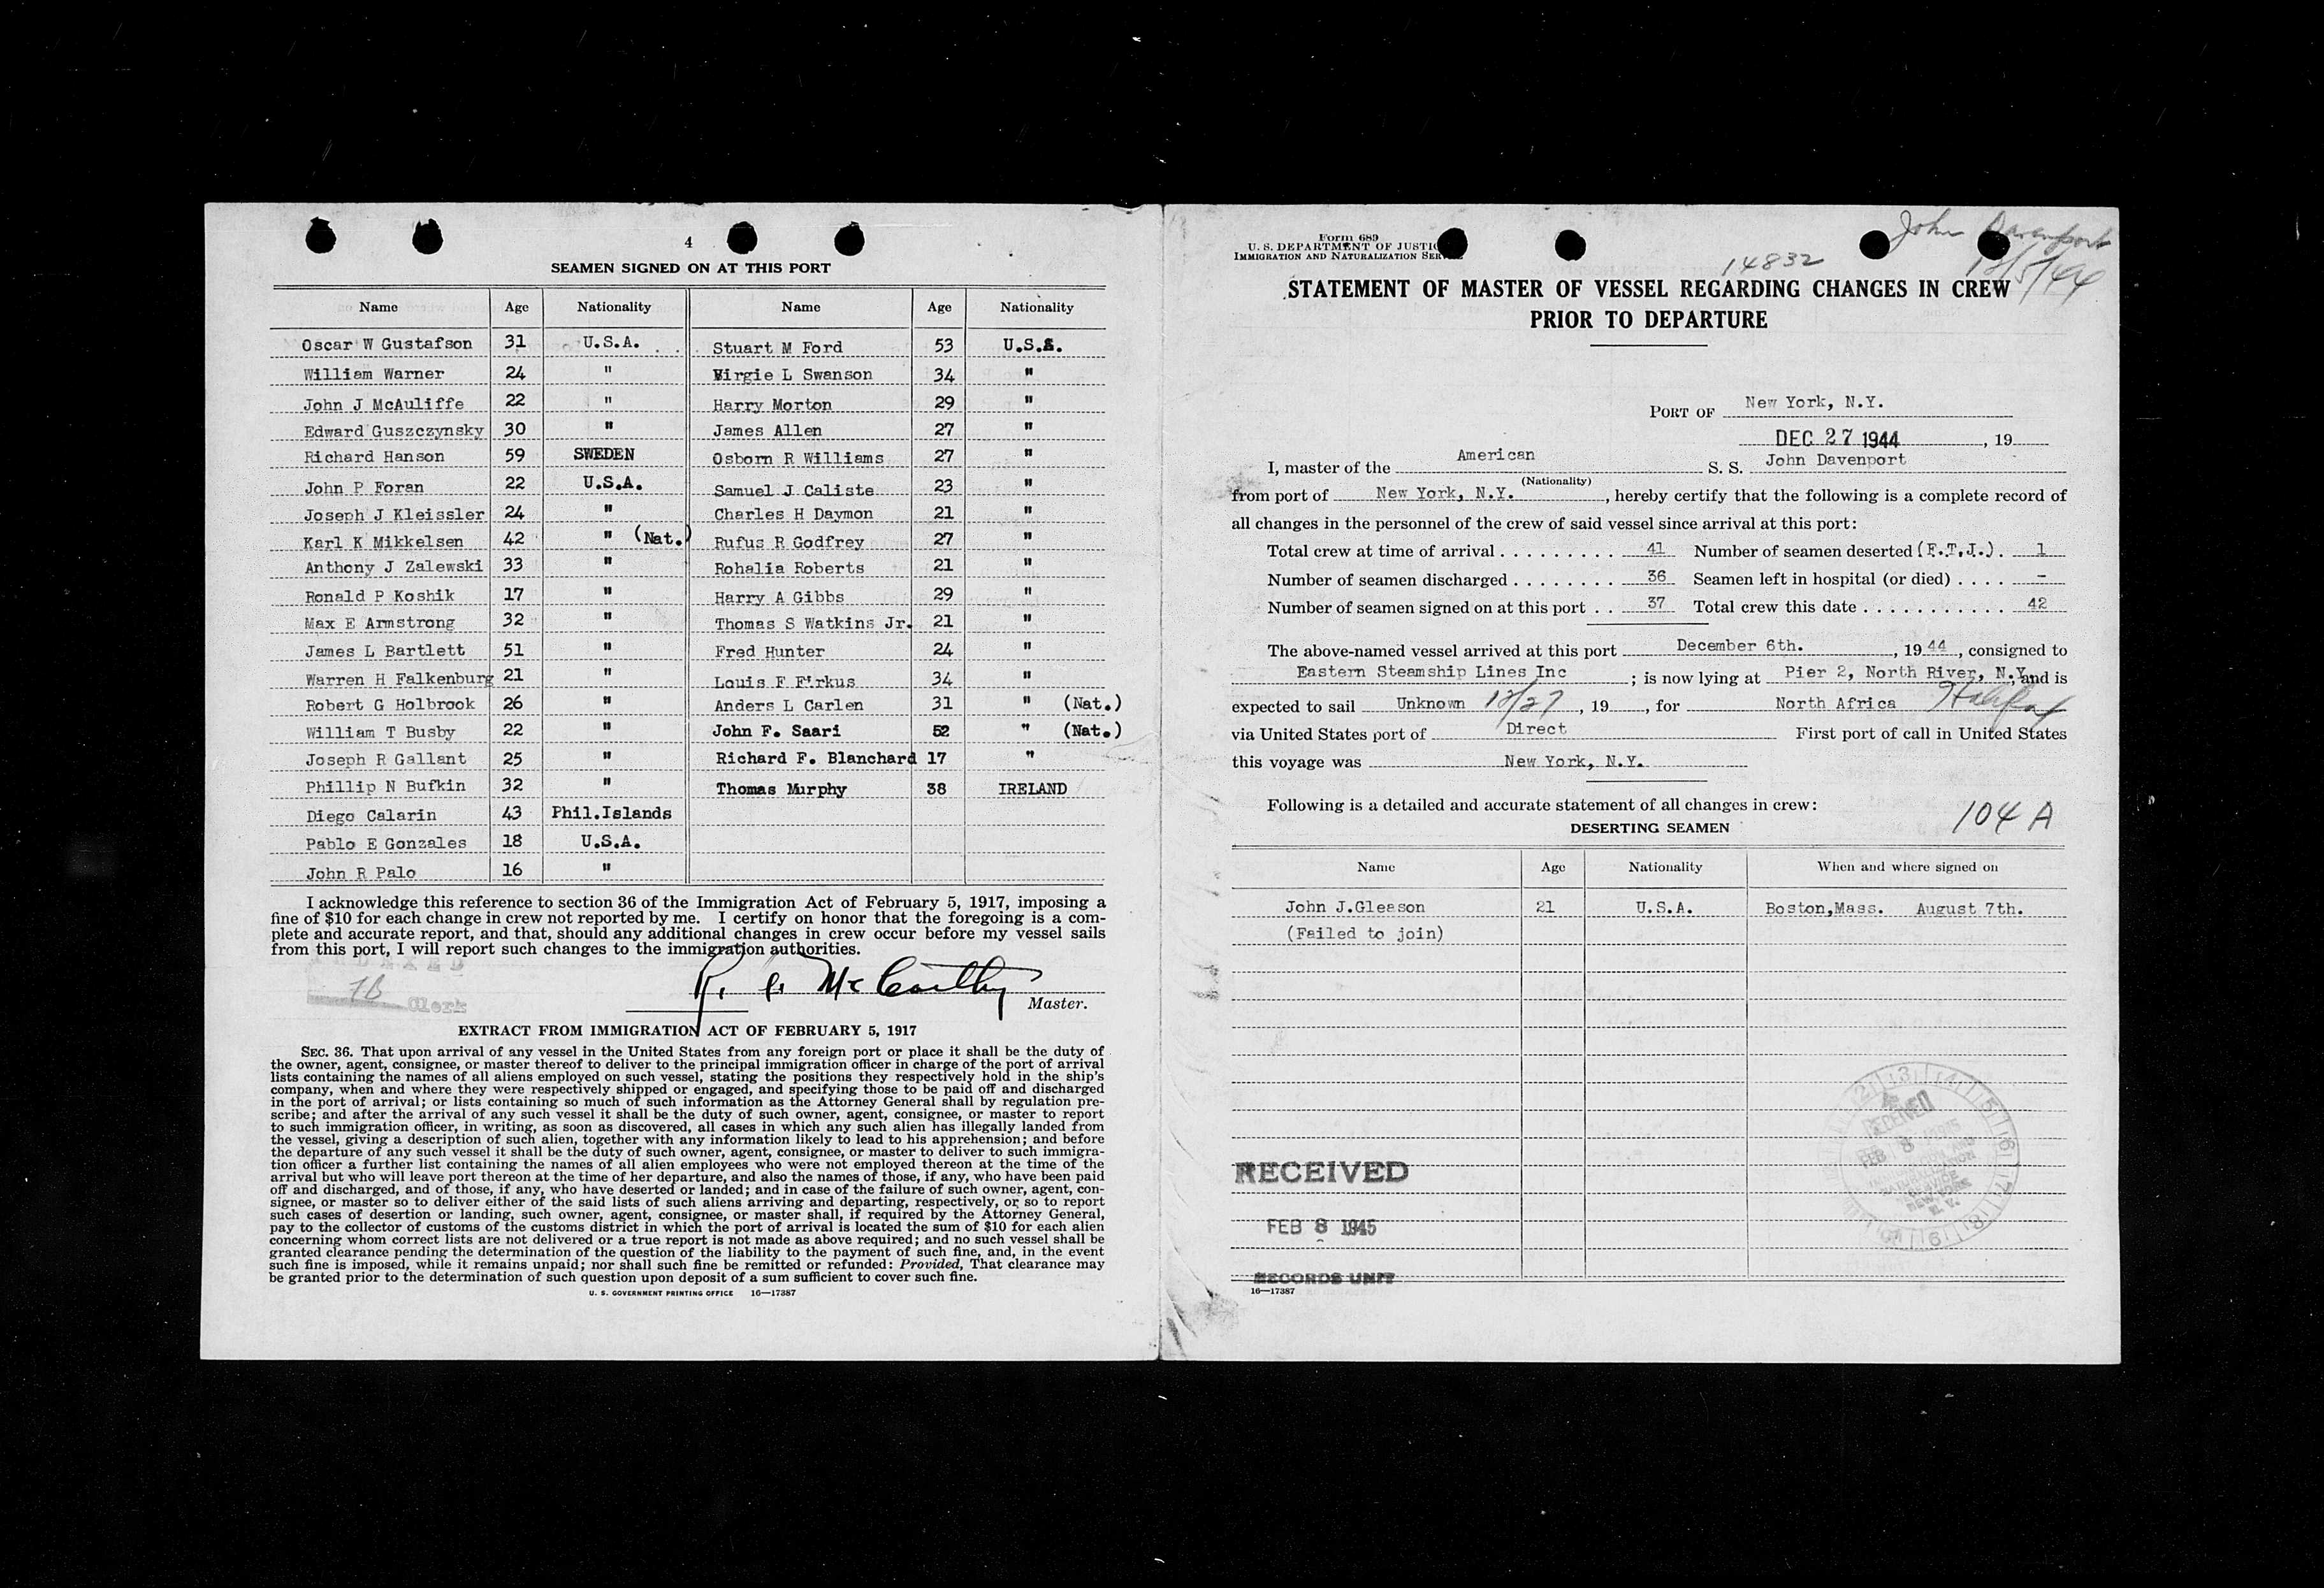 4
SEAMEN SIGNED ON AT THIS PORT
Name Age Nationality Name Age Nationality
Oscar W Gustafson 31 U.S.A. Stuart M Ford 53 U.S.A.
William Warner 24 " Virgie L Swanson 34 "
John J McAuliffe 22 " Harry Morton 29 "
Edward Guszczynsky 30 " James Allen 27 "
Richard Hanson 59 SWEDEN Osborn R Williams 27 "
John P Foran 22 U.S.A. Samuel J Caliste 23 "
Joseph J Kleissler 24 " Charles H Daymon 21 "
Karl K Mikkelsen 42 " (Nat.) Rufus R Godfrey 27 "
Anthony J Zalewski 33 " Rohalia Roberts 21 "
Ronald P Koshik 17 " Harry A Gibbs 29 "
Max E Armstrong 32 " Thomas S Watkins Jr. 21 "
James L Bartlett 51 " Fred Hunter 24 "
Warren H Falkenburg 21 " Louis F Firkus 34 "
Robert G Holbrook 26 " Anders L Carlen 31 " (Nat.)
William T Busby 22 " John F. Saari 52 " (Nat.)
Joseph R Gallant 25 " Richard F. Blanchard 17 "
Phillip N Bufkin 32 " Thomas Murphy 38 IRELAND
Diego Calarin 43 Phil.Islands
Pablo E Gonzales 18 U.S.A.
John R Palo 16 "
I acknowledge this reference to section 36 of the Immigration Act of February 5, 1917, imposing a
fine of $10 for each change in crew not reported by me. I certify on honor that the foregoing is a com-
plete and accurate report, and that, should any additional changes in crew occur before my vessel sails
from this port, I will report such changes to the immigration authorities.
Clerk
McCarthy
Master.
EXTRACT FROM IMMIGRATION ACT OF FEBRUARY 5, 1917
SEC. 36. That upon arrival of any vessel in the United States from any foreign port or place it shall be the duty of
the owner, agent, consignee, or master thereof to deliver to the principal immigration officer in charge of the port of arrival
lists containing the names of all aliens employed on such vessel, stating the positions they respectively hold in the ship's
company, when and where they were respectively shipped or engaged, and specifying those to be paid off and discharged
in the port of arrival; or lists containing so much of such information as the Attorney General shall by regulation pre-
scribe; and after the arrival of any such vessel it shall be the duty of such owner, agent, consignee, or master to report
to such immigration officer, in writing, as soon as discovered, all cases in which any such alien has illegally landed from
the vessel, giving a description of such alien, together with any information likely to lead to his apprehension; and before
the departure of any such vessel it shall be the duty of such owner, agent, consignee, or master to deliver to such immigra-
tion officer a further list containing the names of all alien employees who were not employed thereon at the time of the
arrival but who will leave port thereon at the time of her departure, and also the names of those, if any, who have been paid
off and discharged, and of those, if any, who have deserted or landed; and in case of the failure of such owner, agent, con-
signee, or master so to deliver either of the said lists of such aliens arriving and departing, respectively, or so to report
such cases of desertion or landing, such owner, agent, consignee, or master shall, if required by the Attorney General,
pay to the collector of customs of the customs district in which the port of arrival is located the sum of $10 for each alien
concerning whom correct lists are not delivered or a true report is not made as above required; and no such vessel shall be
granted clearance pending the determination of the question of the liability to the payment of such fine, and, in the event
such fine is imposed, while it remains unpaid; nor shall such fine be remitted or refunded: Provided, That clearance may
be granted prior to the determination of such question upon deposit of a sum sufficient to cover such fine.
U. S. GOVERNMENT PRINTING OFFICE 16—17387
Form 689
U. S. DEPARTMENT OF JUSTIC
IMMIGRATION AND NATURALIZATION SER
John Davenport
14832
STATEMENT OF MASTER OF VESSEL REGARDING CHANGES IN CREW
PRIOR TO DEPARTURE
PORT OF New York, N.Y.
DEC 27 1944, 19
I, master of the American S. S. John Davenport
(Nationality)
from port of New York, N.Y., hereby certify that the following is a complete record of
all changes in the personnel of the crew of said vessel since arrival at this port:
Total crew at time of arrival . . . . . . . . . 41 Number of seamen deserted (F.T.J.) . 1
Number of seamen discharged . . . . . . . . 36 Seamen left in hospital (or died) . . . . -
Number of seamen signed on at this port . . 37 Total crew this date . . . . . . . . . . . 42
The above-named vessel arrived at this port December 6th., 19 44, consigned to
Eastern Steamship Lines Inc ; is now lying at Pier 2, North River, N.Y., and is
expected to sail Unknown 12/27, 19 , for North Africa Halifax
via United States port of Direct First port of call in United States
this voyage was New York, N.Y.
Following is a detailed and accurate statement of all changes in crew:
104 A
DESERTING SEAMEN
Name Age Nationality When and where signed on
John J.Gleason 21 U.S.A. Boston,Mass. August 7th.
(Failed to join)
RECEIVED
FEB 8 1945
RECORDS UNIT
16—17387
RECEIVED
FEB 8 1945